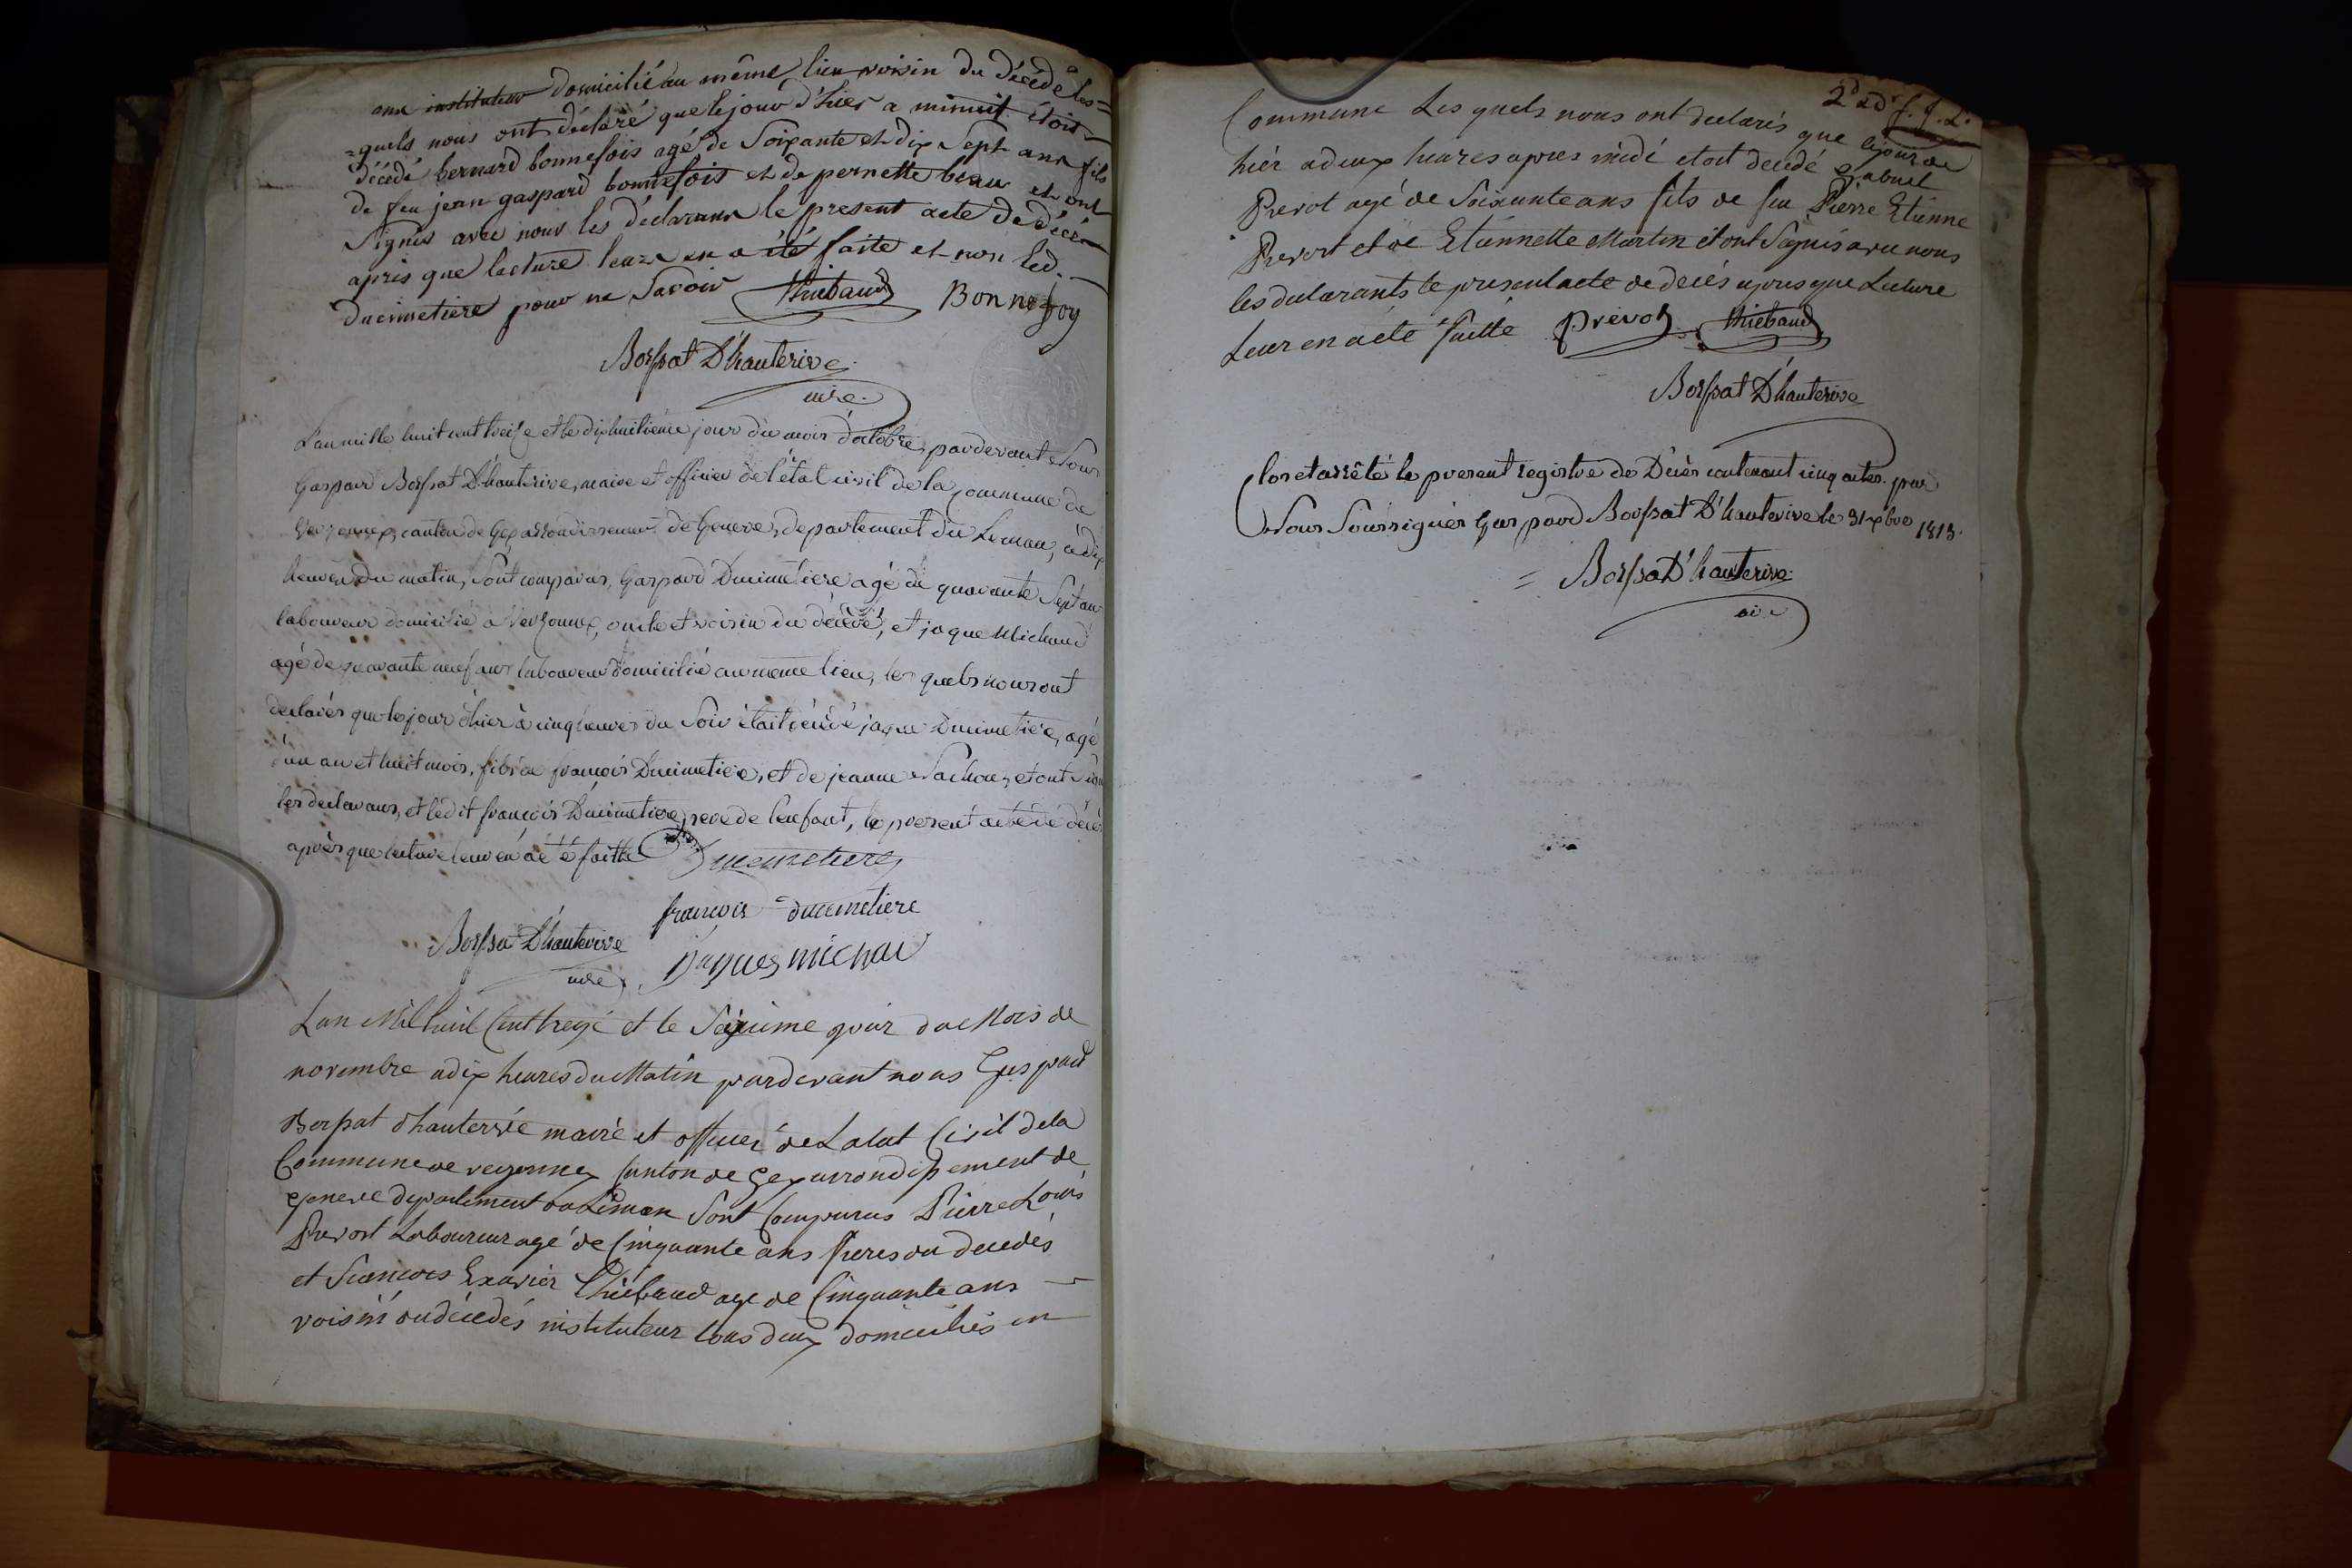 ans instituteur domicilié au même lieu voisin du décédé les=
=quels nous ont déclaré que le jour d'hier a minuit étoit
décédé bernard bonnefois agé de Soixante et dix Sept ans fils
de feu jean gaspard bonnefois et de pernette beau et ont
Signés avec nous les déclarans le present acte de décès
après que lecture leur en a été faite et non led.
Ducimetiere pour ne Savoir Thiebaud Bonnefoy
Borssat D'hauterive
mre.
L'an mille huit cent treize et le dixhuitième jour du mois d'octobre, pardevant Nous
Gaspard Borssat D'hauterive, maire et officier de l'état civil de la commune de
Versonnex, canton de Gex arrondissement de Geneve, departement du Leman, à dix
heures du matin, Sont comparus, Gaspard Ducimetiere agé de quarante Sept ans
laboureur domicilié à Versonnex, oncle et voisin du décédé, et jaque Michaud
agé de quarante neuf ans laboureur domicilié au meme lieu, les quels nous ont
declarés que le jour d'hier à cinq heures du Soir était décédé jaque Ducimetiere, agé
d'un an et huit mois, fils de françois Ducimetiere, et de jeanne Nachon, et ont Signé
les declarans, et ledit françois Ducimetiere, pere de l'enfant, le present acte de décès
après que lecture leur en a été faitte Ducimetiere
françois = ducimetiere
Borssat D'hauterive jaques michau
mre
Lan Mil huit Cent treize et le Seizieme jour du Mois de
novembre a dix heures du Matin pardevant nous Gaspard
Borssat d'hauterive maire et officier de Letat Civil de la
Commune de versonnex Canton de Gex arrondissement de
geneve departement du Léman Sont Comparus Pierre Louis
Prevost Laboureur agé de Cinquante ans freres du decedés
et François Exavier Thiebaud age de Cinquante ans
voisin du décedés instituteur tous deux domiciliés en
2d ad f. J. L.
Commune Les quels nous ont declarés que le jour de
hier a deux heures apres midi etoit decedé gabriel
Prevot agé de Soixante ans fils de feu Pierre Etienne
Prevost et de Etiennette Martin et ont Signés avec nous
les declarants le present acte de decès apres que Lecture
Leur en a été faitte prevot Thiebaud
Borssat D'hauterive
Clos et arrêté le present registre de Décès contenant cinq actes. par
Nous Soussignés Gaspard Borssat D'hauterive le 31 xbre 1813.
= Borssat D'hauterive
mre